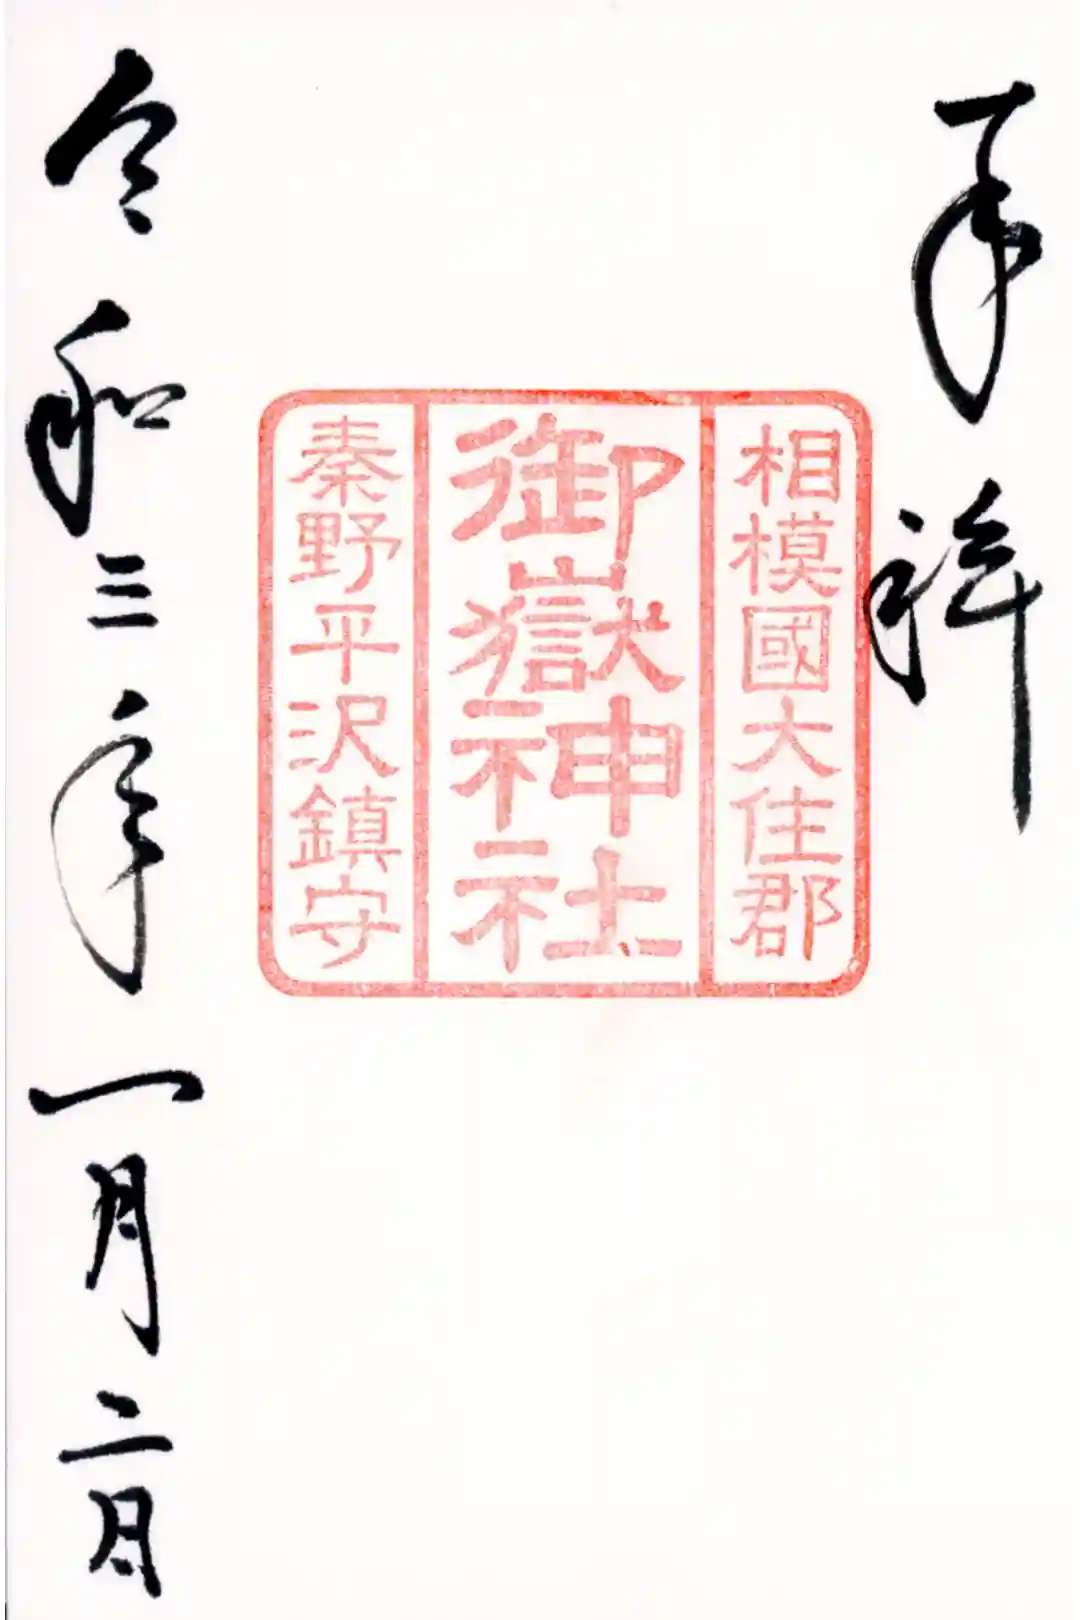 奉拝
相模國大住郡
御嶽神社
秦野平沢鎮守
令和三年一月二日